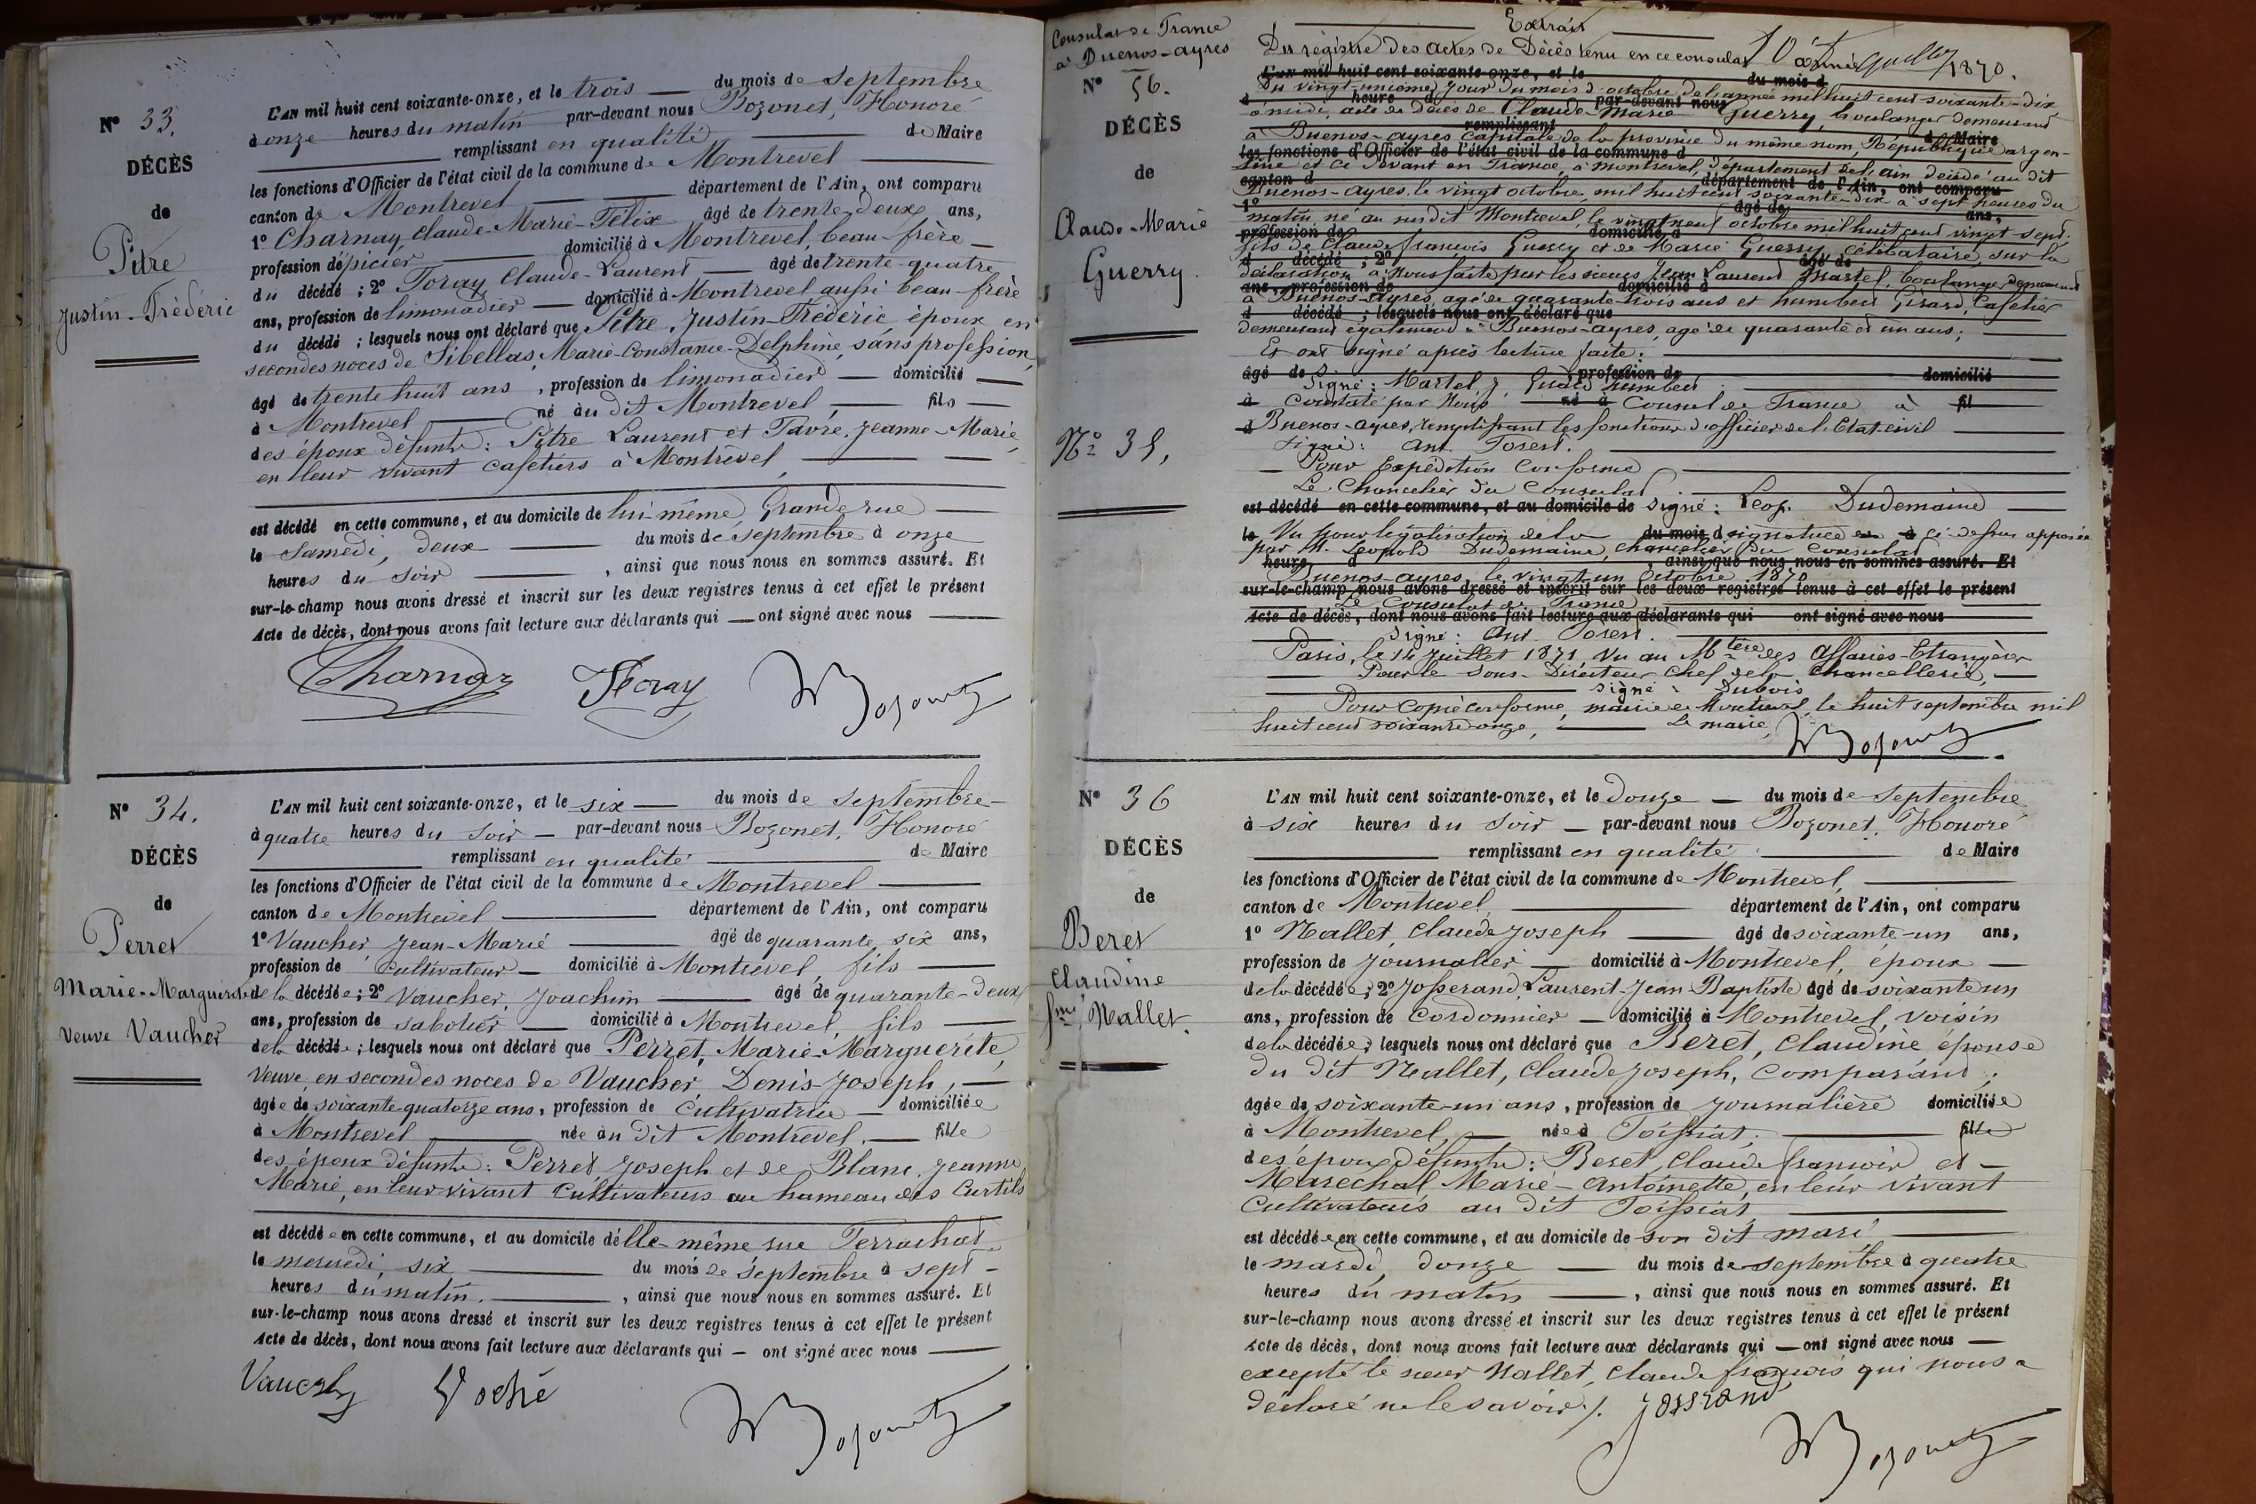 N° 33.
DÉCÈS
de
Pitre
Justin-Frédéric
L'AN mil huit cent soixante-onze, et le trois du mois de septembre
à onze heures du matin par-devant nous Bozonet, Honoré
remplissant en qualité de Maire
les fonctions d'Officier de l'état civil de la commune de Montrevel
canton de Montrevel département de l'Ain, ont comparu
1° Charnay, Claude-Marie-Félix âgé de trente-deux ans,
profession d'épicier domicilié à Montrevel, beau-frère
du décédé ; 2° Foray Claude-Laurent âgé de trente-quatre
ans, profession de limonadier domicilié à Montrevel aussi beau-frère
du décédé ; lesquels nous ont déclaré que Pitre, Justin-Frédéric époux en
secondes noces de Sibellas, Marie-Constance-Delphine, sans profession,
âgé de trente huit ans, profession de limonadier domicilié
à Montrevel né au dit Montrevel, fils
des époux défunts : Pitre Laurent et Favre, Jeanne-Marie,
en leur vivant cafetiers à Montrevel,
est décédé en cette commune, et au domicile de lui-même, Grande rue
le samedi, deux du mois de septembre à onze
heures du soir, ainsi que nous nous en sommes assuré. Et
sur-le-champ nous avons dressé et inscrit sur les deux registres tenus à cet effet le présent
Acte de décès, dont nous avons fait lecture aux déclarants qui ont signé avec nous
Charnay Foray Bozonet
N° 34.
DÉCÈS
de
Perret
Marie-Marguerite
veuve Vaucher
L'AN mil huit cent soixante-onze, et le six du mois de septembre
à quatre heures du soir par-devant nous Bozonet, Honoré
remplissant en qualité de Maire
les fonctions d'Officier de l'état civil de la commune de Montrevel
canton de Montrevel département de l'Ain, ont comparu
1° Vaucher, Jean-Marie âgé de quarante six ans,
profession de cultivateur domicilié à Montrevel, fils
de la décédée ; 2° Vaucher, Joachim âgé de quarante-deux
ans, profession de sabotier domicilié à Montrevel, fils
de la décédée ; lesquels nous ont déclaré que Perret, Marie-Marguerite,
veuve en secondes noces de Vaucher Denis-Joseph,
âgée de soixante-quatorze ans, profession de cultivatrice domiciliée
à Montrevel née au dit Montrevel, fille
des époux défunts : Perret Joseph et de Blanc, Jeanne
Marie, en leur vivant cultivateurs au hameau des Curtils
est décédée en cette commune, et au domicile d'elle-même rue Terrachat
le mercredi, six du mois de septembre à sept
heures du matin, ainsi que nous nous en sommes assuré. Et
sur-le-champ nous avons dressé et inscrit sur les deux registres tenus à cet effet le présent
Acte de décès, dont nous avons fait lecture aux déclarants qui ont signé avec nous
Vaucher Bozonet
Consulat de France
à Buenos-ayres
N° 56.
DÉCÈS
de
Claude-Marie
Guerry
N° 35,
Extrait
Du registre des actes de Décès tenu en ce consulat 1870.
L'AN mil huit cent soixante-onze, et le du mois d
Du vingt-unième jour du mois d'octobre de l'année mil huit cent soixante-dix
à heure d par-devant nous
à midi, acte de décès de Claude-Marie Guerry, boulanger demeurant
remplissant d Maire
à Buenos-ayres capitale de la province du même nom, République argen-
les fonctions d'Officier de l'état civil de la commune d
tine et ci devant en France, à Montrevel, département de l'ain décédé au dit
canton d département de l'Ain, ont comparu
Buenos-ayres le vingt octobre mil huit cent soixante-dix à sept heures du
1° âgé de ans,
matin, né au susdit Montrevel, le vingt neuf octobre mil huit cent vingt sept.
profession de domicilié à
fils de Claude françois Guerry et de Marie Guerry, célibataire, sur la
d décédé ; 2° âgé de
déclaration à Nous faite par les sieurs Jean Laurent Martel, boulanger demeurant
ans, profession de domicilié à
à Buenos-ayres, agé de quarante-trois ans et humbert Girard, Cafetier
d décédé ; lesquels nous ont déclaré que
demeurant également à Buenos-ayres, age de quarante et un ans ;
Et ont signé après lecture faite :
âgé de profession de domicilié
Signé : Martel, J. Girard humbert
à né à fil
Constaté par Nous Consul de France à
d Buenos-ayres, remplissant les fonctions d'officier de l'Etat-civil
signé : Ant. Forest.
Pour Expédition Conforme
Le Chancelier du Consulat
est décédé en cette commune, et au domicile de signé : Léop. Dudemaine
le Vu pour légalisation de la du mois d signature à ci-dessus apposée
par M. Léopold Dudemaine, chancelier du Consulat
heure d, ainsi que nous nous en sommes assuré. Et
Buenos-ayres, le vingt-un Octobre 1870
sur-le-champ nous avons dressé et inscrit sur les deux registres tenus à cet effet le présent
Le Consulat de France
Acte de décès, dont nous avons fait lecture aux déclarants qui ont signé avec nous
Signé : Ant. Forest.
Paris, le 14 Juillet 1871, Vu au Mtère des Affaires-Etrangères
Pour le Sous-Directeur Chef de la Chancellerie,
signé : Dubois
Pour copie conforme, mairie de Montrevel, le huit septembre mil
huit cent soixante onze, Le maire,
Bozonet
N° 36
DÉCÈS
de
Beret
Claudine
fme Nallet.
L'AN mil huit cent soixante-onze, et le douze du mois de septembre
à six heures du soir par-devant nous Bozonet, Honoré
remplissant en qualité de Maire
les fonctions d'Officier de l'état civil de la commune de Montrevel,
canton de Montrevel, département de l'Ain, ont comparu
1° Nallet, Claude Joseph âgé de soixante-un ans,
profession de journalier domicilié à Montrevel, époux
de la décédée ; 2° Josserand, Laurent-Jean-Baptiste âgé de soixante un
ans, profession de cordonnier domicilié à Montrevel, voisin
de la décédée ; lesquels nous ont déclaré que Beret, Claudine épouse
du dit Nallet, Claude Joseph, comparant ;
âgée de soixante-un ans, profession de journalière domiciliée
à Montrevel, née à Foissiat, fille
des époux défunts : Beret, Claude françois et
Maréchal Marie-Antoinette, en leur vivant
cultivateurs au dit Foissiat,
est décédée en cette commune, et au domicile de son dit mari
le mardi, douze du mois de septembre à quatre
heures du matin, ainsi que nous nous en sommes assuré. Et
sur-le-champ nous avons dressé et inscrit sur les deux registres tenus à cet effet le présent
Acte de décès, dont nous avons fait lecture aux déclarants qui ont signé avec nous
excepté le sieur Nallet, Claude françois qui nous a
déclaré ne le savoir /. Josserand
Bozonet